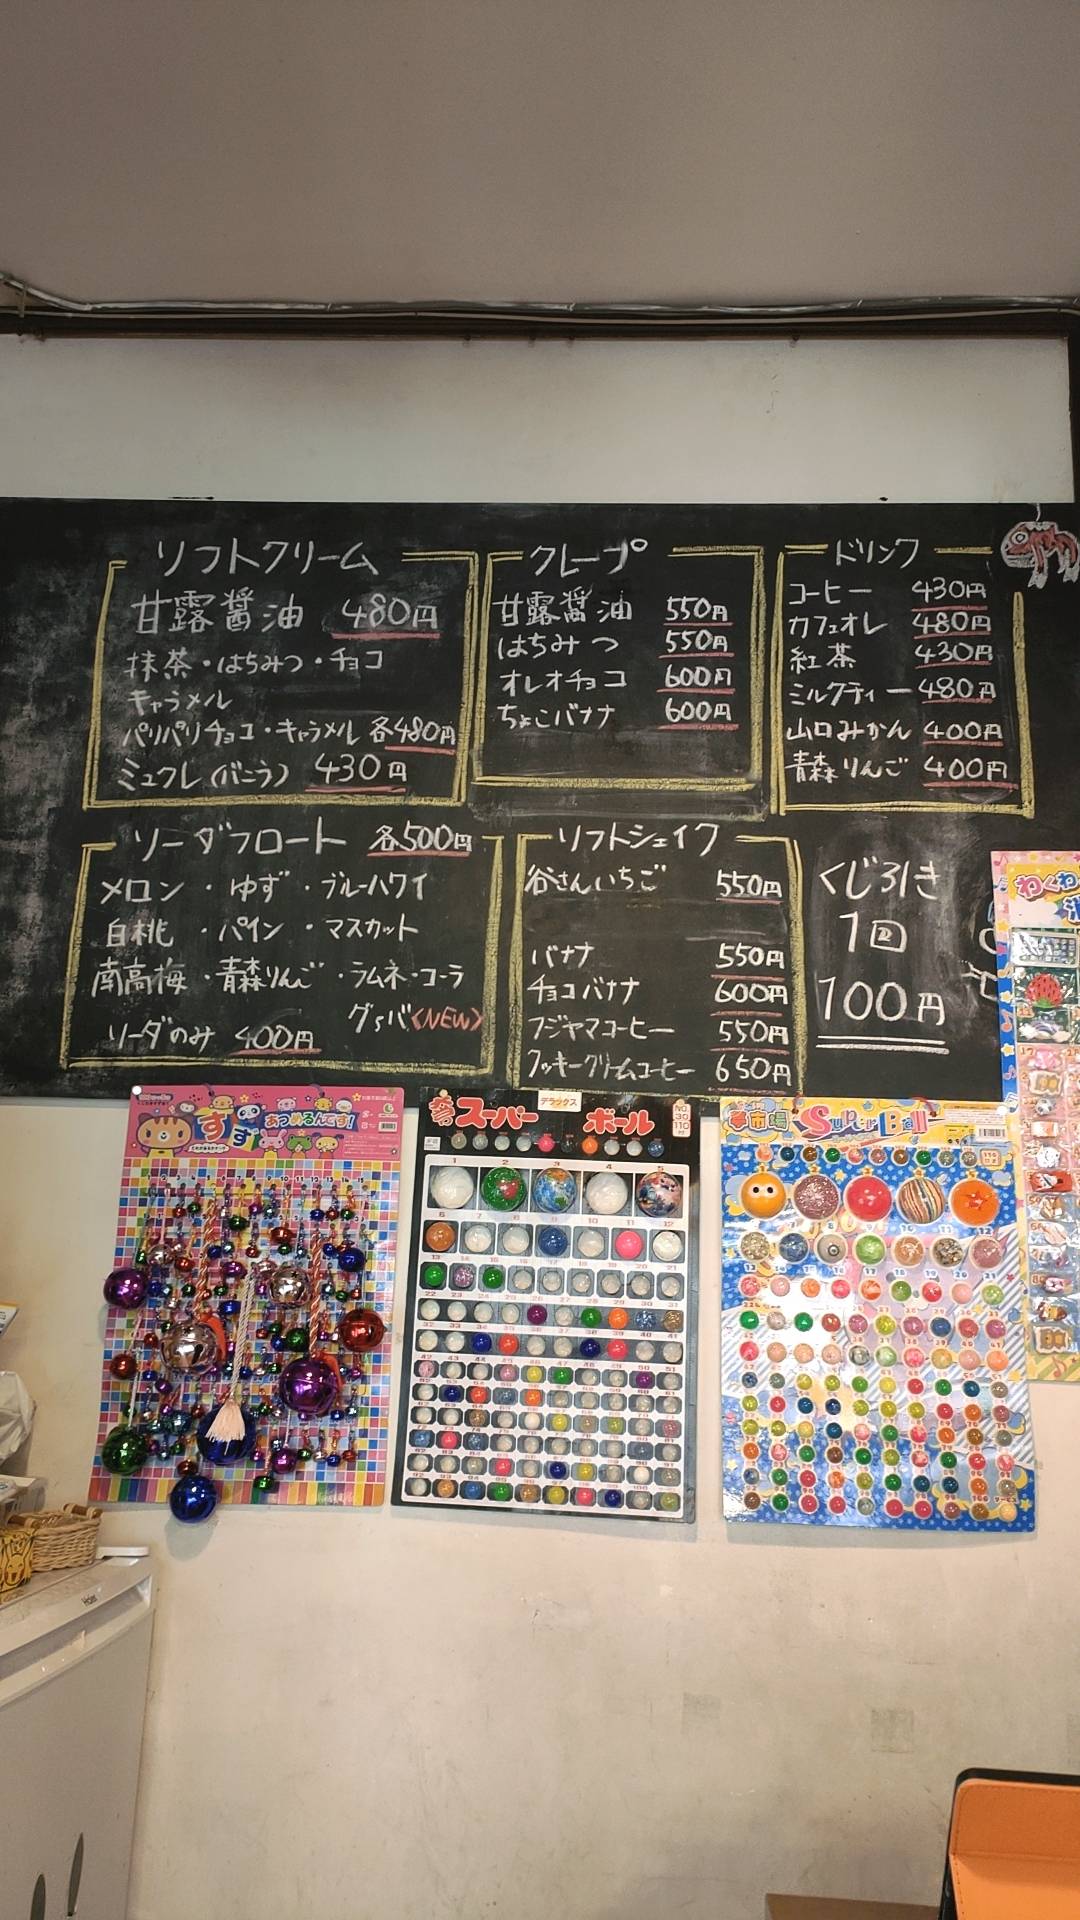 ソフトクリーム
甘露醤油 480円
抹茶・はちみつ・チョコ
キャラメル
パリパリチョコ・キャラメル 各480円
ミュクレ(バニラ) 430円
クレープ
甘露醤油 550円
はちみつ 550円
オレオチョコ 600円
ちょこバナナ 600円
ドリンク
コーヒー 430円
カフェオレ 480円
紅茶 430円
ミルクティー 480円
山口みかん 400円
青森りんご 400円
ソーダフロート 各500円
メロン・ゆず・ブルーハワイ
白桃・パイン・マスカット
南高梅・青森りんご・ラムネ・コーラ
グァバ<NEW>
ソーダのみ 400円
ソフトシェイク
谷さんいちご 550円
バナナ 550円
チョコバナナ 600円
フジヤマコーヒー 550円
クッキークリームコーヒー 650円
くじ引き
1回
100円
すず
あつめるんです!
当て スーパーボール
デラックス
夢市場 Super Ball
わくわ
Haier